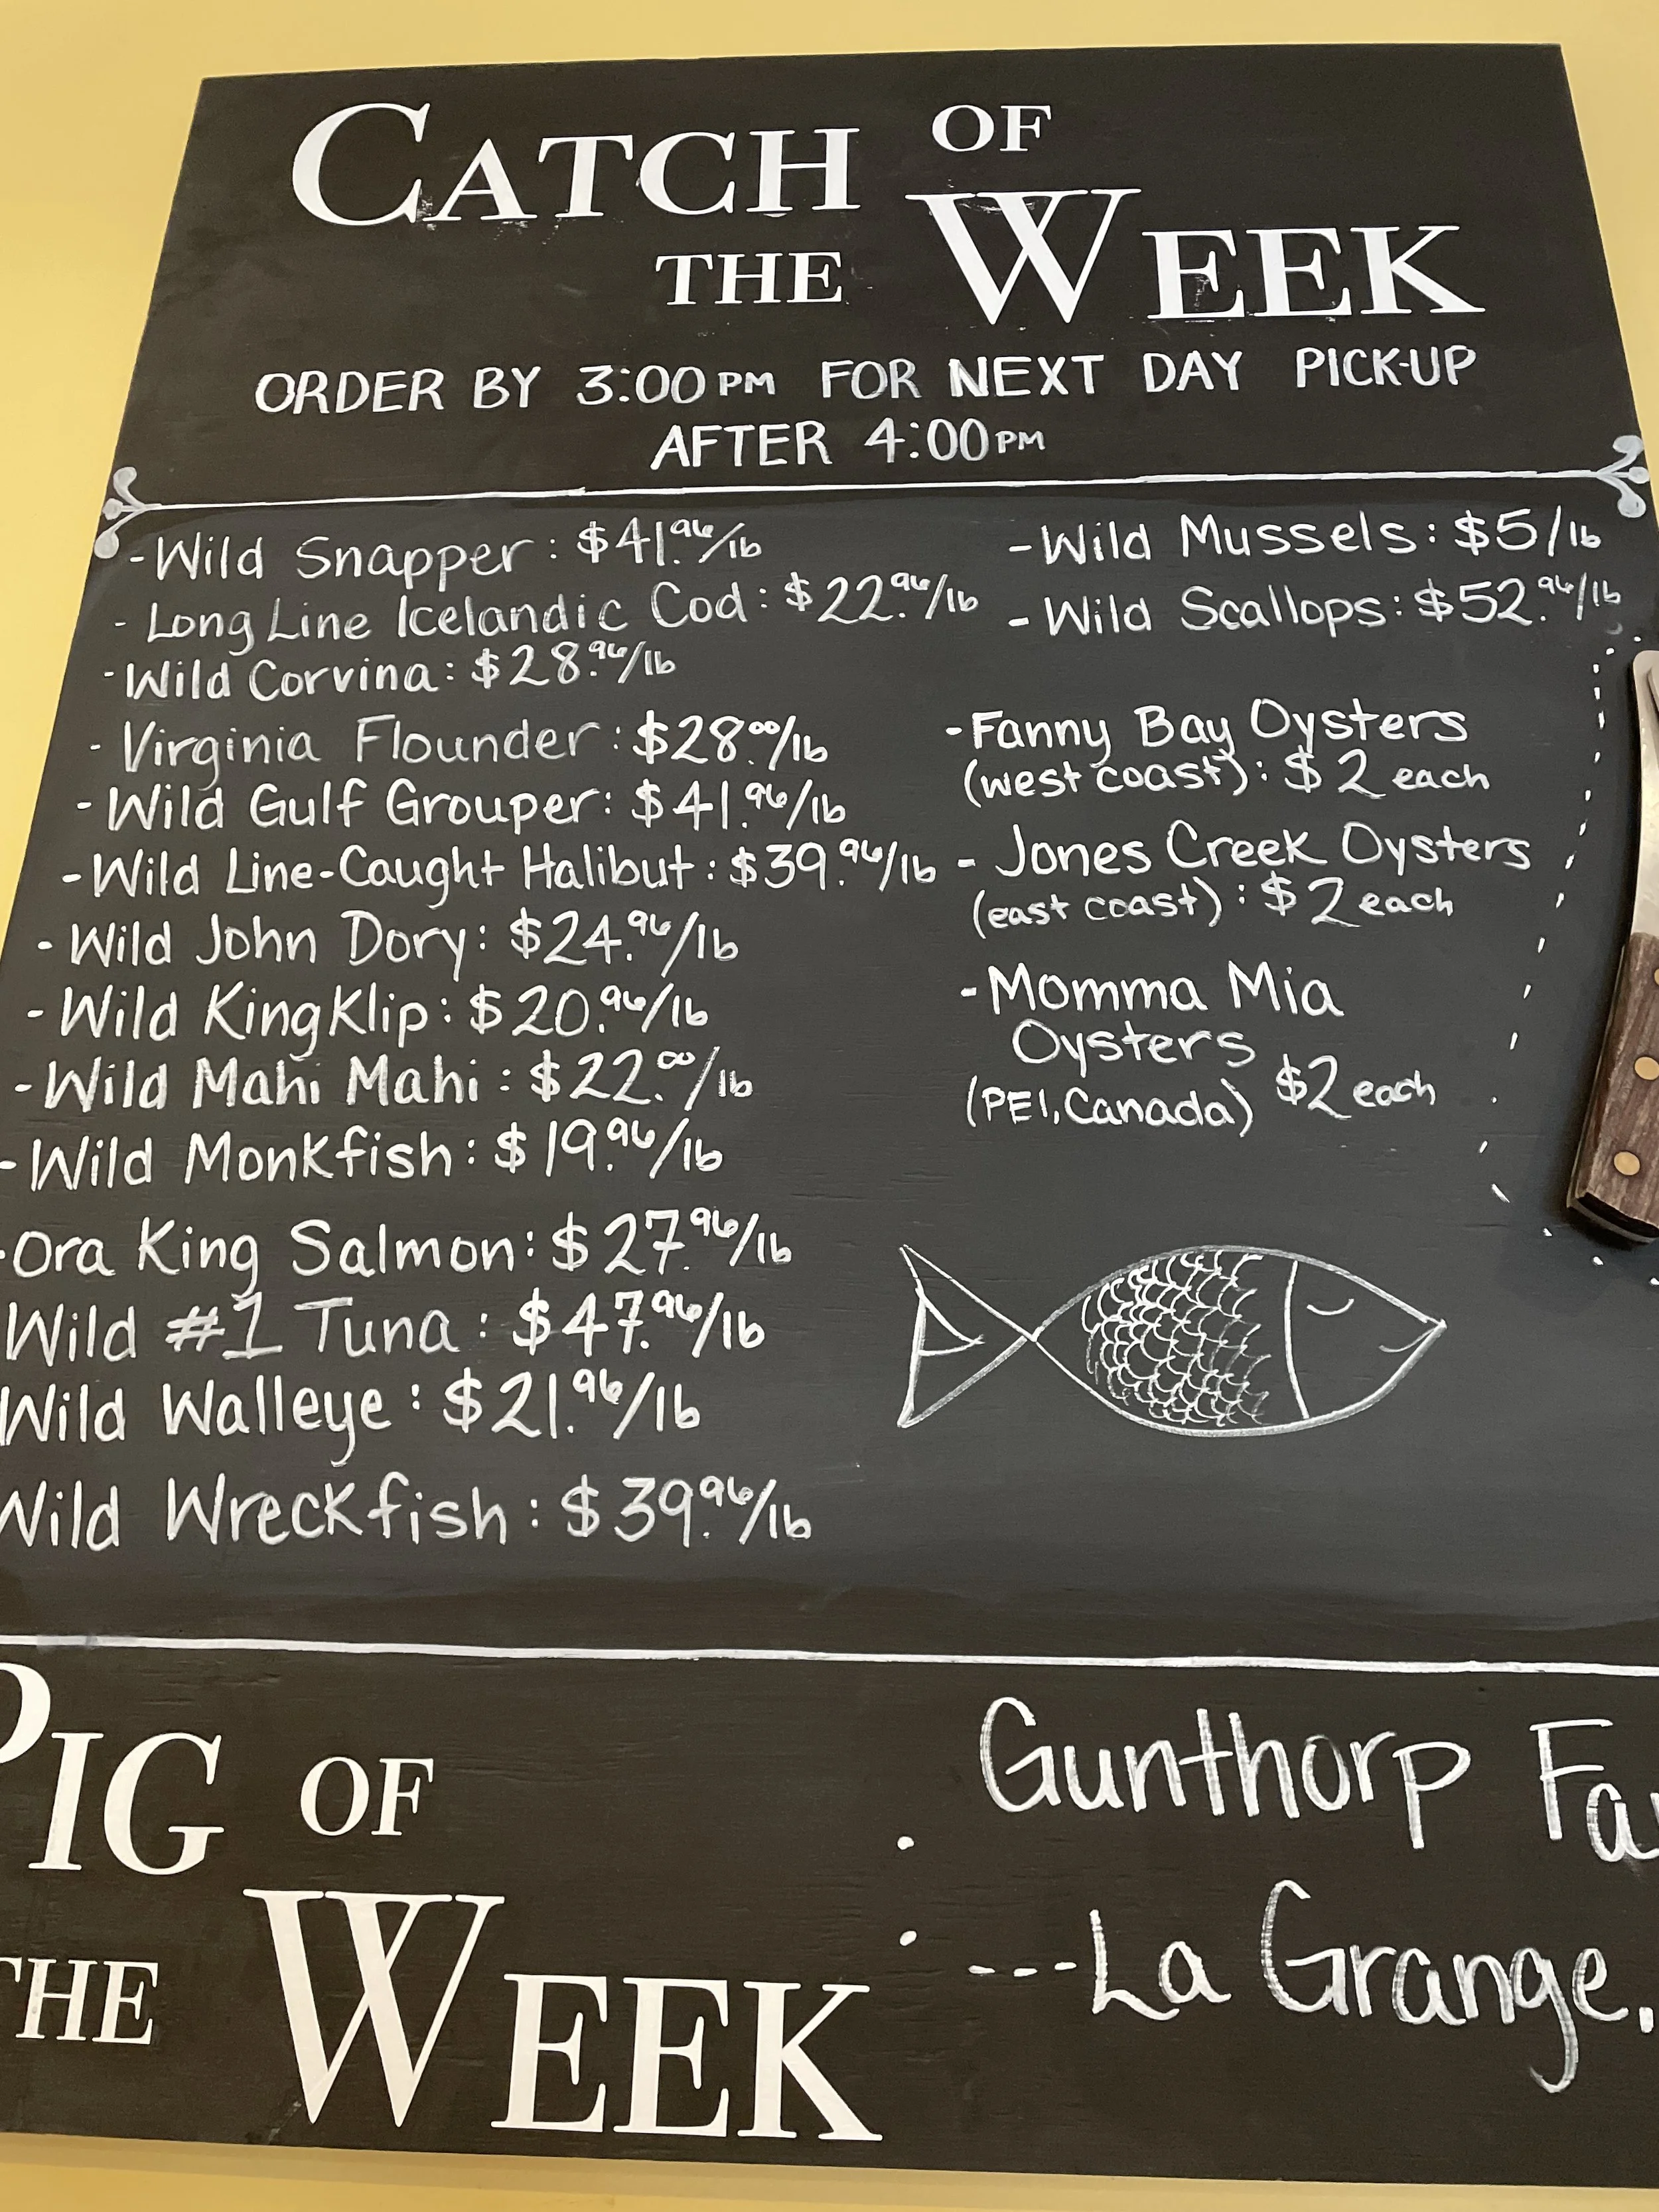 CATCH OF
THE WEEK
ORDER BY 3:00PM FOR NEXT DAY PICK-UP
AFTER 4:00PM
-Wild Snapper: $41.96/lb
- Long Line Icelandic Cod: $22.96/lb
-Wild Corvina: $28.96/lb
- Virginia Flounder: $28.00/lb
- Wild Gulf Grouper: $41.96/lb
-Wild Line-Caught Halibut: $39.96/lb
- Wild John Dory: $24.96/lb
- Wild KingKlip: $20.96/lb
- Wild Mahi Mahi: $22.00/lb
- Wild Monkfish: $19.96/lb
-Ora King Salmon: $27.96/lb
Wild #1 Tuna: $47.96/lb
Wild Walleye: $21.96/lb
Wild Wreckfish: $39.96/lb
-Wild Mussels: $5/lb
- Wild Scallops: $52.96/lb
-Fanny Bay Oysters
(west coast): $2 each
- Jones Creek Oysters
(east coast): $2 each
-Momma Mia
Oysters
(PEI, Canada) $2 each
PIG OF
THE WEEK
Gunthorp Fa
---La Grange,